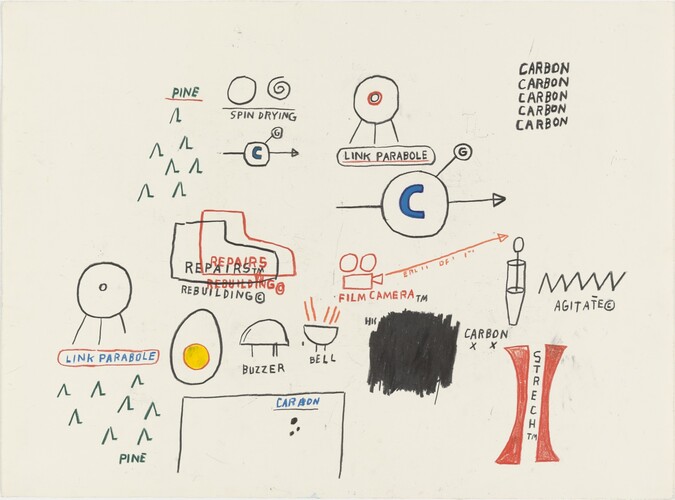 PINE
SPIN DRYING
C G
LINK PARABOLE
C G
CARBON
CARBON
CARBON
CARBON
CARBON
REPAIRS
REPAIRS™
REBUILDING©
REBUILDING©
FILM CAMERA™
AGITATE©
LINK PARABOLE
BUZZER
BELL
CARBON
X X
STRECH™
CARBON
PINE